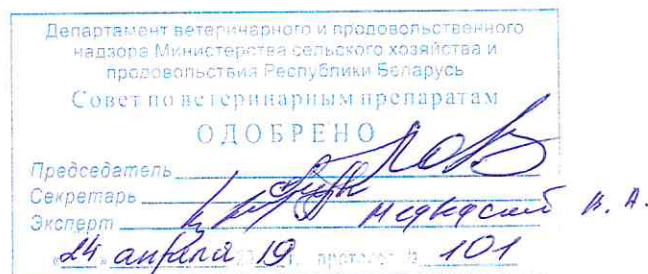 Департамент ветеринарного и продовольственного
надзора Министерства сельского хозяйства и
продовольствия Республики Беларусь
Совет по ветеринарным препаратам
ОДОБРЕНО
Председатель
Секретарь
Эксперт В. А.
«24» апреля 19 г. протокол № 101